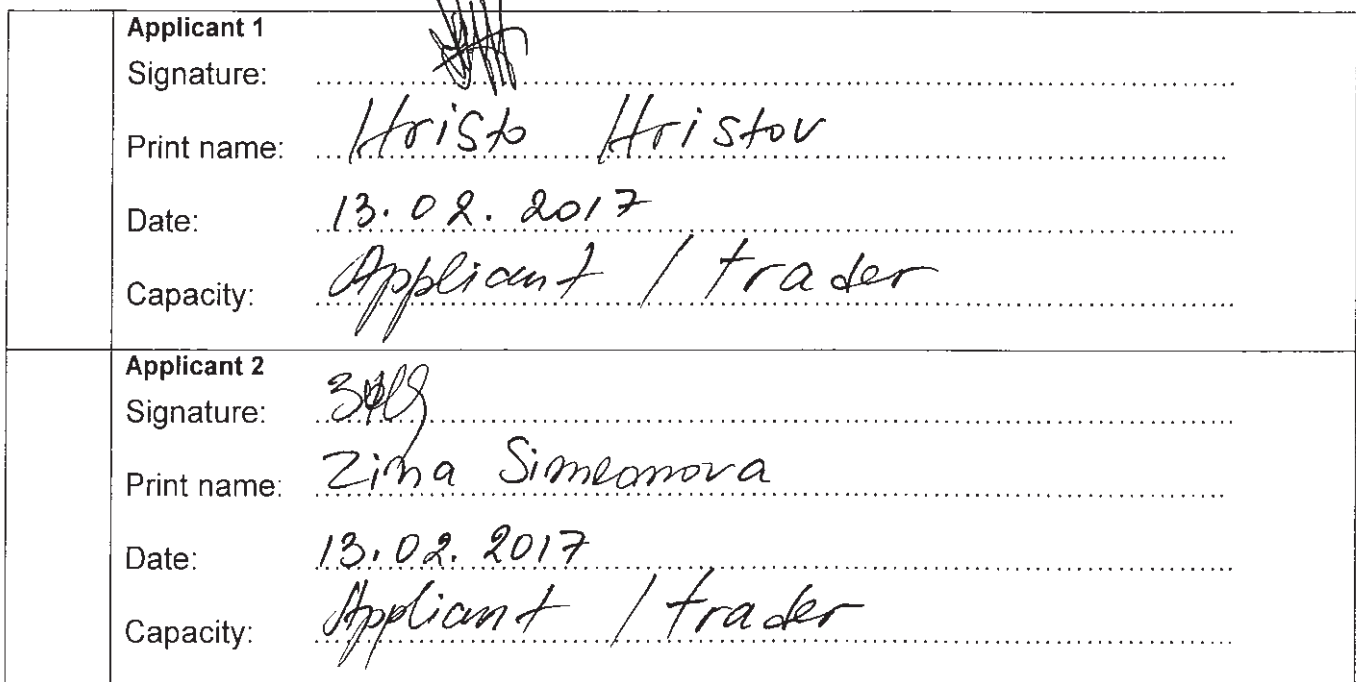 Applicant 1
Signature:
Print name: Hristo Hristov
Date: 13.02.2017
Capacity: Applicant / trader
Applicant 2
Signature:
Print name: Zina Simeonova
Date: 13.02.2017
Capacity: Applicant / trader